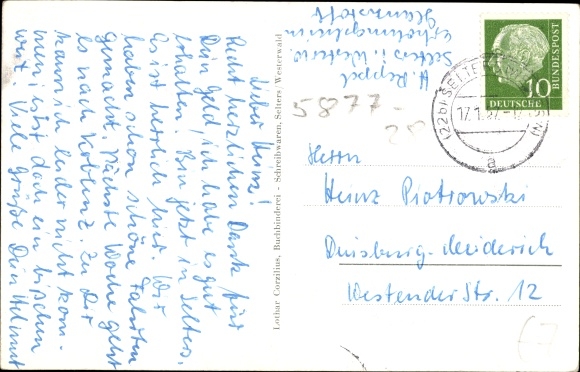 Lieber Heinz!
Recht herzlichen Dank für
Dein Geld, ich habe es gut
erhalten! Bin jetzt in Selters,
es ist herrlich hier. Wir
haben schon schöne Fahrten
gemacht. Nächste Woche geht
es nach Koblenz. Zu Dir
kann ich leider nicht kom-
men, es ist doch ein bischen
weit. Viele Grüße Dein Helmut
Lothar Corzilius, Buchbinderei - Schreibwaren, Selters/Westerwald
H. Reppel
Selters i. Westerw
Erholungsheim
Glanzstoff
5877-
20
DEUTSCHE
BUNDESPOST
10
(22b) SELTERS
17.1.57
a
Herrn
Heinz Piotrowski
Duisburg-Meiderich
Westender Str. 12